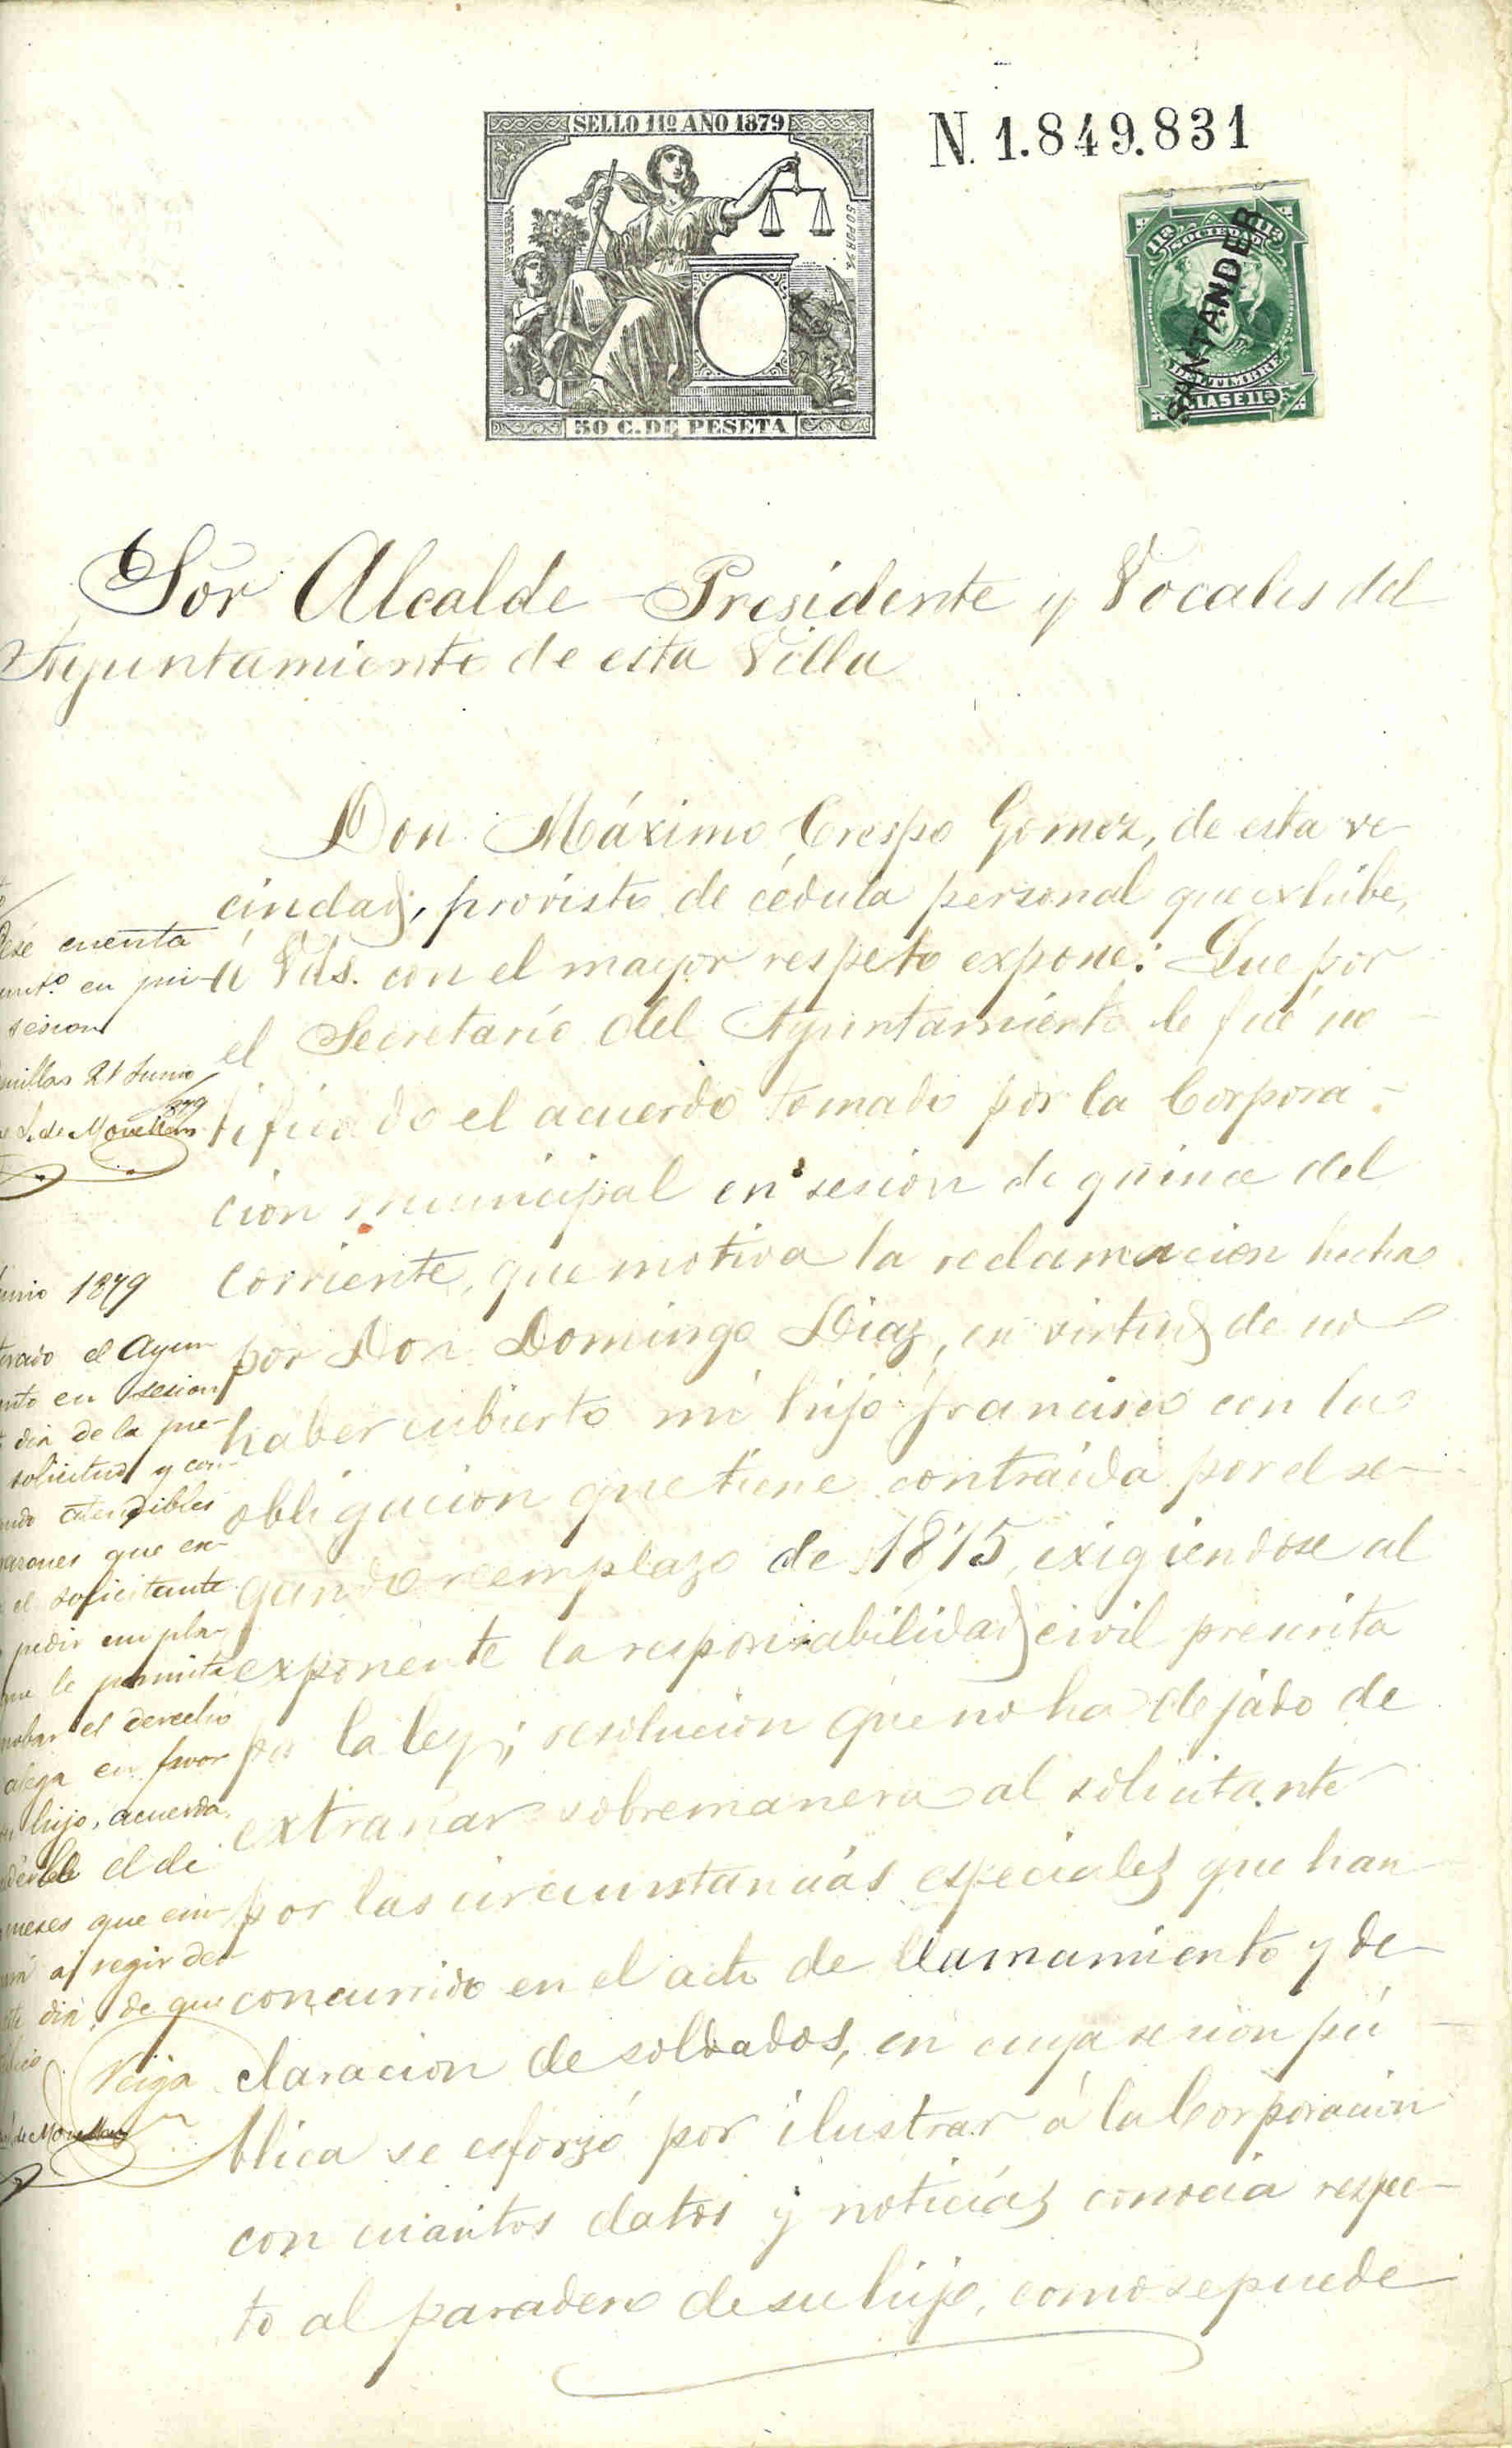 SELLO 11º AÑO 1879
50 C. DE PESETA
N. 1.849.831
11ª SOCIEDAD 11ª
DEL TIMBRE
CLASE 11ª
SANTANDER
Sor Alcalde-Presidente y Vocales del
Ayuntamiento de esta Villa
Don Máximo Crespo Gomez, de esta ve-
cindad, provisto de cédula personal que exhibe,
á Vds. con el mayor respeto expone: Que por
el Secretario del Ayuntamiento le fué no-
tificado el acuerdo tomado por la Corpora-
cion municipal en sesion de quince del
corriente, que motiva la reclamacion hecha
por Don Domingo Diaz, en virtud de no
haber cubierto mi hijo Francisco con la
obligacion que tiene contraida por el se-
gundo reemplazo de 1875, exigiendose al
exponente la responsabilidad civil prescrita
por la ley; resolucion que no ha dejado de
extrañar sobremanera al solicitante
por las circunstancias especiales que han
concurrido en el acto de llamamiento y de-
claracion de soldados, en cuya sesion pú-
blica se esforzó por ilustrar á la Corporacion
con cuantos datos y noticias conocia respec-
to al paradero de su hijo, como se puede
Dese cuenta
en pri-
sesion
millas 21 Junio
1879
de Movellan
unio 1879
terado el Ayun
nto en sesion
dia de la pre-
solicitud y con-
ndo atendibles
razones que ex-
el solicitante
pedir un pla-
que le permita
probar el derecho
alega en favor
hijo, acuerda
el de
meses que em-
á regir des-
dia, de que
Veiga
de Movellan